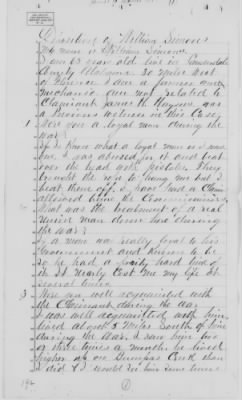 Deposition of William Simons
My name is William Simons
I am 63 years old live in Lauderdale
County Alabama 20 miles West
of Florence I am a farmer and
mechanic am not related to
Claimant James H
a Previous witness in this Case
1 Were you a loyal man during the
war?
If I know what a loyal man is I was
one I was abused for it and beat
over the head with pistols. They
brought the rope to hang me but I
beat them off. I have had a Claim
allowed before the Commissioners
What was the treatment of a real
Union man down here during
the war?
If a man was really loyal to his
Government and known to be
so he had a pretty hard time of
it. It Nearly Cost me my life at
several times
3 Were you well acquainted with
the Claimant during the war
I was well acquainted with him
lived about 5 miles South of him
during the War. I saw him two
or three times a month he lived
higher up on Bumpas Creek than
I did & I would see him some times
(1)